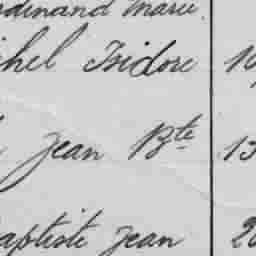 rdinand Marie.
chel Isidore
Jean Bte 13
aptiste Jean 20